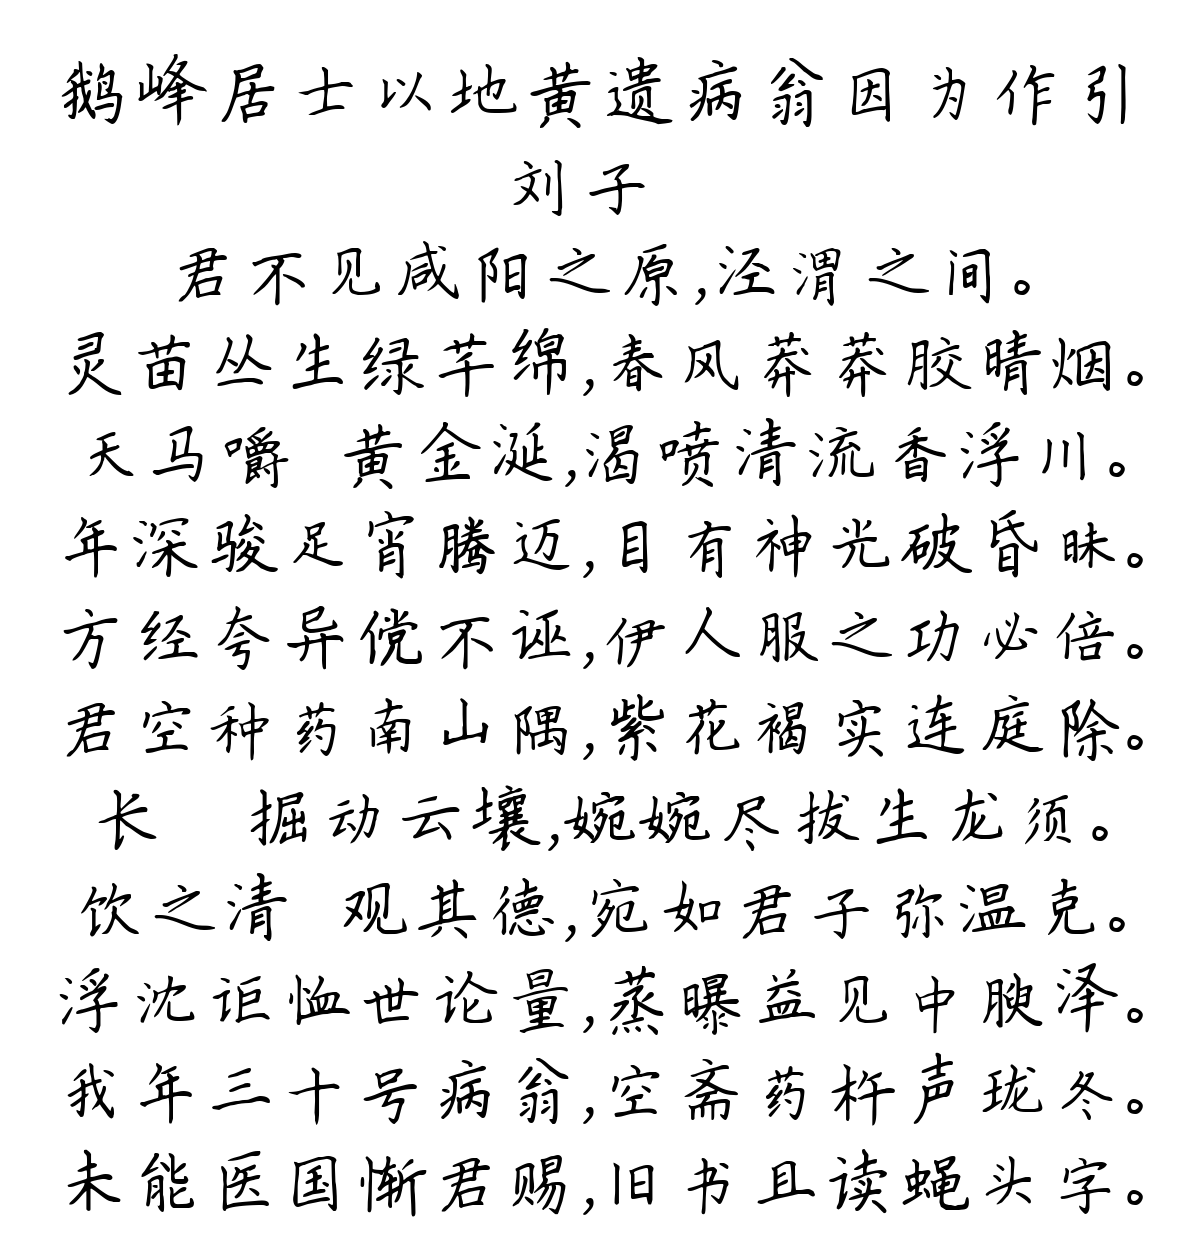 鹅峰居士以地黄遗病翁因为作引
刘子
君不见咸阳之原,泾渭之间。
灵苗丛生绿芊绵,春风莽莽胶晴烟。
天马嚼 黄金涎,渴喷清流香浮川。
年深骏足宵腾迈,目有神光破昏昧。
方经夸异傥不诬,伊人服之功必倍。
君空种药南山隅,紫花褐实连庭除。
长 掘动云壤,婉婉尽拔生龙须。
饮之清 观其德,宛如君子弥温克。
浮沈讵恤世论量,蒸曝益见中腴泽。
我年三十号病翁,空斋药杵声珑冬。
未能医国惭君赐,旧书且读蝇头字。